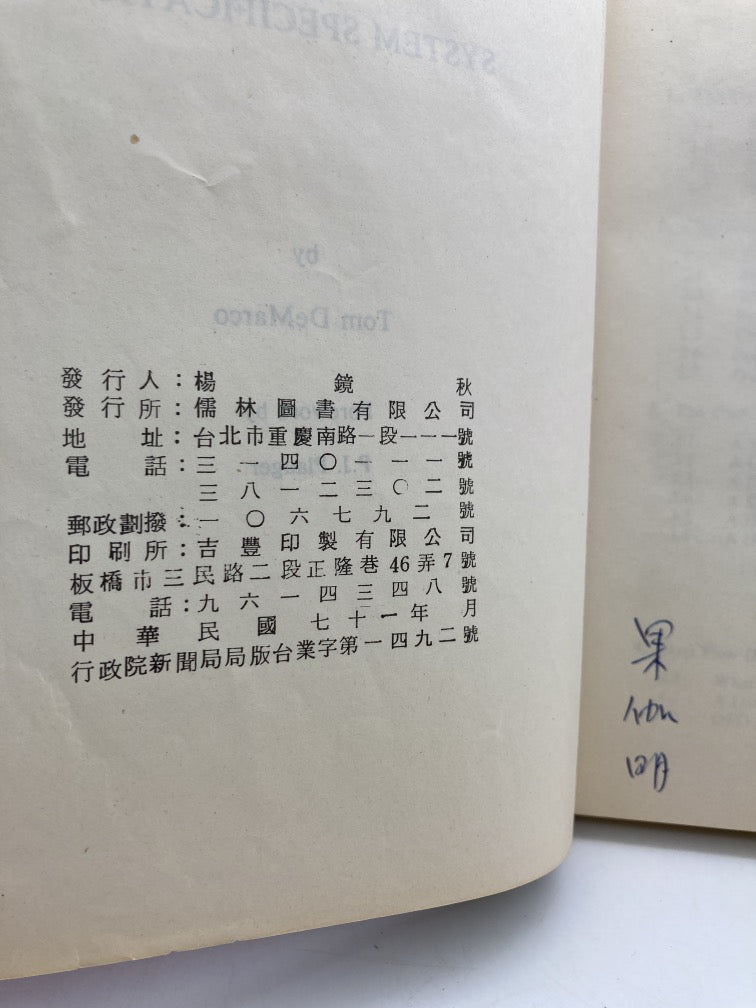 發行人：楊鏡秋
發行所：儒林圖書有限公司
地址：台北市重慶南路一段一一一號
電話：三一四〇一一一號
三八一二三〇二號
郵政劃撥：一〇六七九二號
印刷所：吉豐印製有限公司
板橋市三民路二段正隆巷46弄7號
電話：九六一四三四八號
中華民國七十一年 月
行政院新聞局局版台業字第一四九二號
SYSTEM SPECIFICATIO
by
Tom DeMarco
果
伽
明